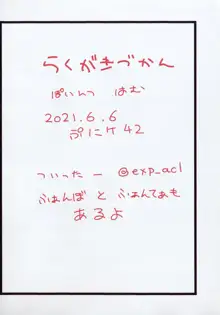 らくがきづかん
ぽいんつ はむ
2021.6.6
ぷにケ42
ついったー @exp_acl
ふぁんぼと ふぁんてぃあも
あるよ